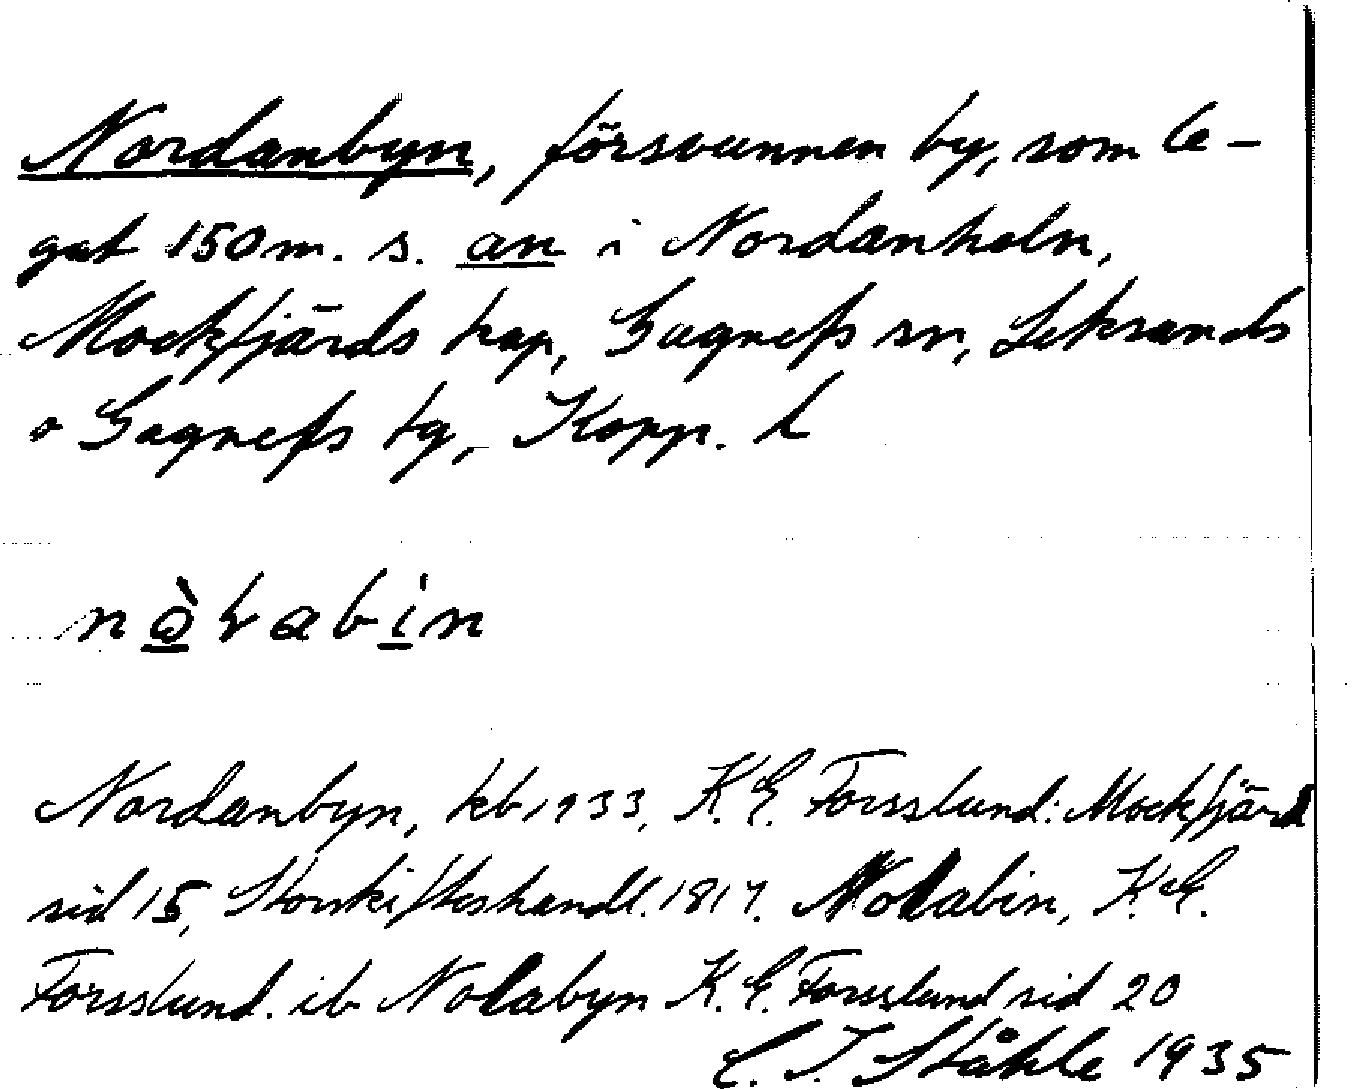 Nordanbyn, försvunnen by, som le-
gat 150 m. s. an i Nordanholn,
Mockfjärds kap, Gagnefs sn, Leksands
o Gagnefs tg, Kopp. l
Nordanbyn, kb 1933, K.E. Forsslund: Mockfjärd
sid 15, Storskifteshandl. 1817. Nolabin, K.E.
Forsslund. ib Nolabyn K.E. Forsslund sid 20
C. I. Ståhle 1935